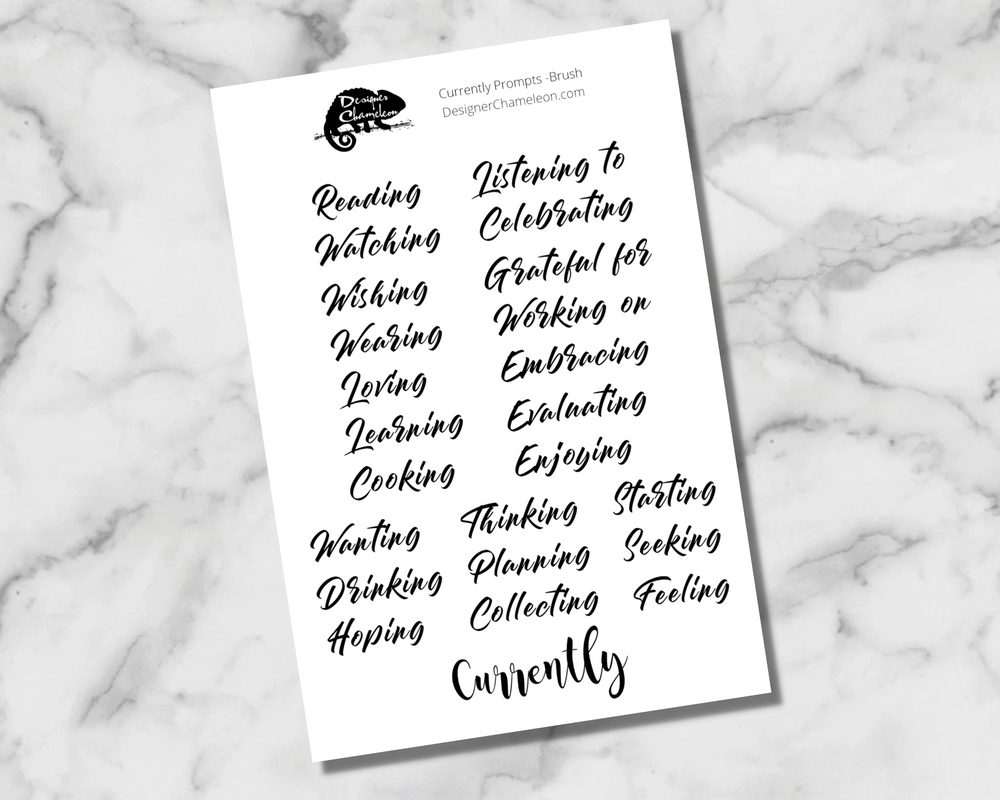 Designer
Chameleon
Currently Prompts -Brush
DesignerChameleon.com
Reading
Watching
Wishing
Wearing
Loving
Learning
Cooking
Listening to
Celebrating
Grateful for
Working on
Embracing
Evaluating
Enjoying
Wanting
Drinking
Hoping
Thinking
Planning
Collecting
Starting
Seeking
Feeling
Currently